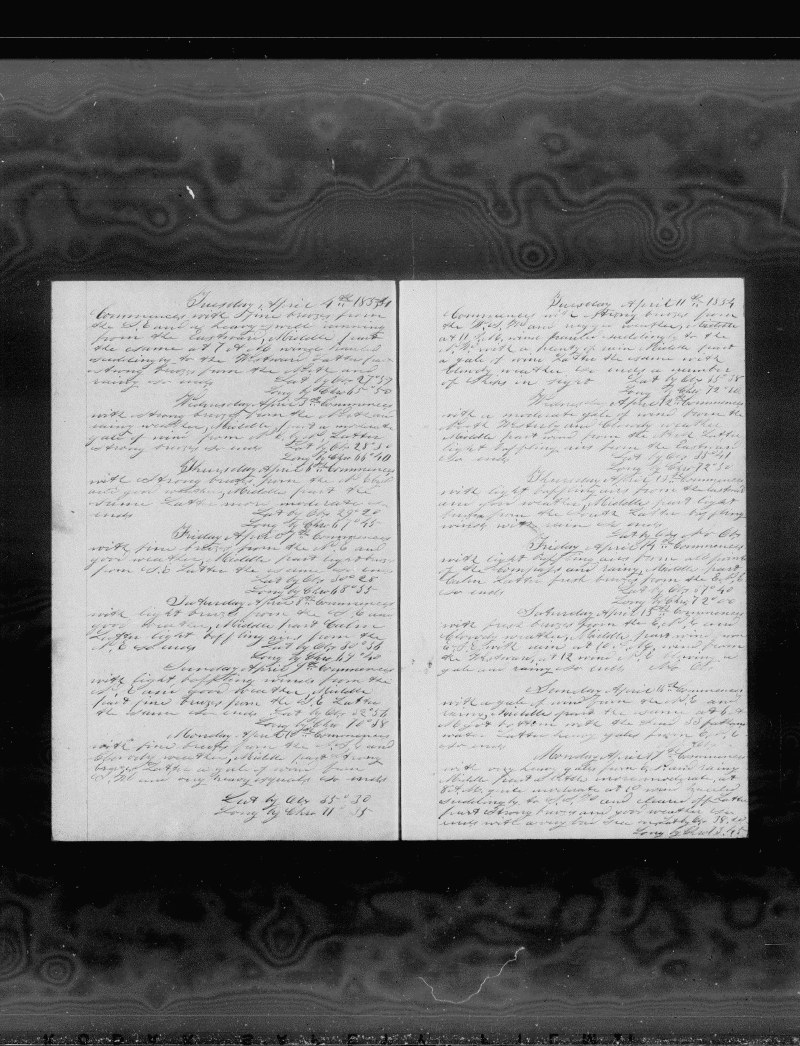 Tuesday, April 4th 1854
Commences with fine breezes from
the S.E. and a heavy swell running
from the Eastward, Middle part
the same at 7 A.M. wind hauled
suddenly to the Westward Latter part
strong breezes from the North and
rainy so ends Lat by Obs 27°57
Long by Chro 65°50
Wednesday April 5th Commences
with strong breezes from the North and
rainy weather, Middle part a moderate
gale of wind from N.E. Latter
strong breezes so ends Lat by Obs 28°30
Long by Chro 66°40
Thursday April 6th Commences
with strong breezes from the N.E.
and good weather, Middle part the
same Latter more moderate so
ends Lat by Obs 29°20
Long by Chro 67°45
Friday April 7th Commences
with fine breezes from the N.E. and
good weather, Middle part light breezes
from S.E. Latter the same so ends
Lat by Obs 30°28
Long by Chro 68°35
Saturday April 8th Commences
with light breezes from the S.E. and
good weather, Middle part Calm
Latter light baffling airs from the
N.E. so ends Lat by Obs 30°56
Long by Chro 69°40
Sunday April 9th Commences
with light baffling winds from the
N.E. and good weather, Middle
part fine breezes from the S.E. Latter
the same so ends Lat by Obs 32°56
Long by Chro 70°58
Monday April 10th Commences
with fine breezes from the S.S.E. and
Cloudy weather, Middle part strong
breezes Latter a gale of wind from
S.W. and very heavy squalls so ends
Lat by Obs 35°30
Long by Chro 71°35
Tuesday April 11th 1854
Commences with strong breezes from
the W.S.W. and rugged weather, Middle
at wind hauled suddenly to the
N.W. with plenty of rain Middle part
a gale of wind Latter the same with
Cloudy weather So ends a number
of Ships in sight Lat by Obs 35°38
Long by Chro 72°10
Wednesday April 12th Commences
with a moderate gale of wind from the
North Westerly and Cloudy weather
Middle part wind from the North Latter
light baffling airs from the Eastward
So ends Lat by Obs 35°41
Long by Chro 72°30
Thursday April 13th Commences
with light baffling airs from the Eastward
and good weather, Middle part light
from the South Latter baffling
winds with rain So ends
Lat by Obs No Obs
Friday April 14th Commences
with light baffling airs from all points
of the Compass and rainy, Middle part
Calm Latter fresh breezes from the E.N.E.
so ends Lat by Obs 37°40
Long by Chro 72°00
Saturday April 15th Commences
with fresh breezes from the E.N.E. and
Cloudy weather, Middle part wind from
S.E. with rain at 10 A.M. wind from
the Westward, at 12 wind N.E. blowing a
gale and rainy So ends No Obs
Sunday April 16th Commences
with a gale of wind from the N.E. and
rainy, Middle part the same at 6
with the lead 33 fathoms
water Latter heavy gales from E.N.E.
so ends No Obs
Monday April 17th Commences
with very heavy gales from and rainy
Middle part a little more moderate, at
8 A.M. quite moderate at 10 wind hauled
suddenly to S.S.W. and cleared off Latter
part strong breezes and good weather So
ends with a very bad sea on Lat by Obs 38
Long by Chro 73.45